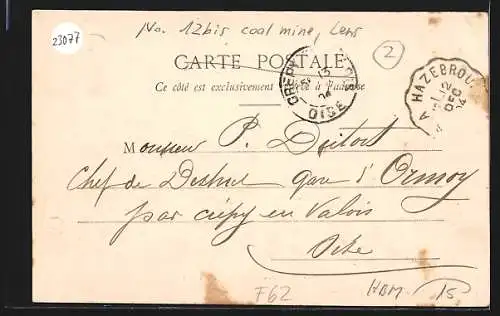 23077
No. 12bis coal mine, Lens
2
CARTE POSTALE
Ce côté est exclusivement à l'adresse
CRÉPY
13
04
OISE
A HAZEBROU
12
DEC
04
Monsieur P.
Chef de District gare d'Ormoy
par crépy en Valois
Oise
F62
HBM
15